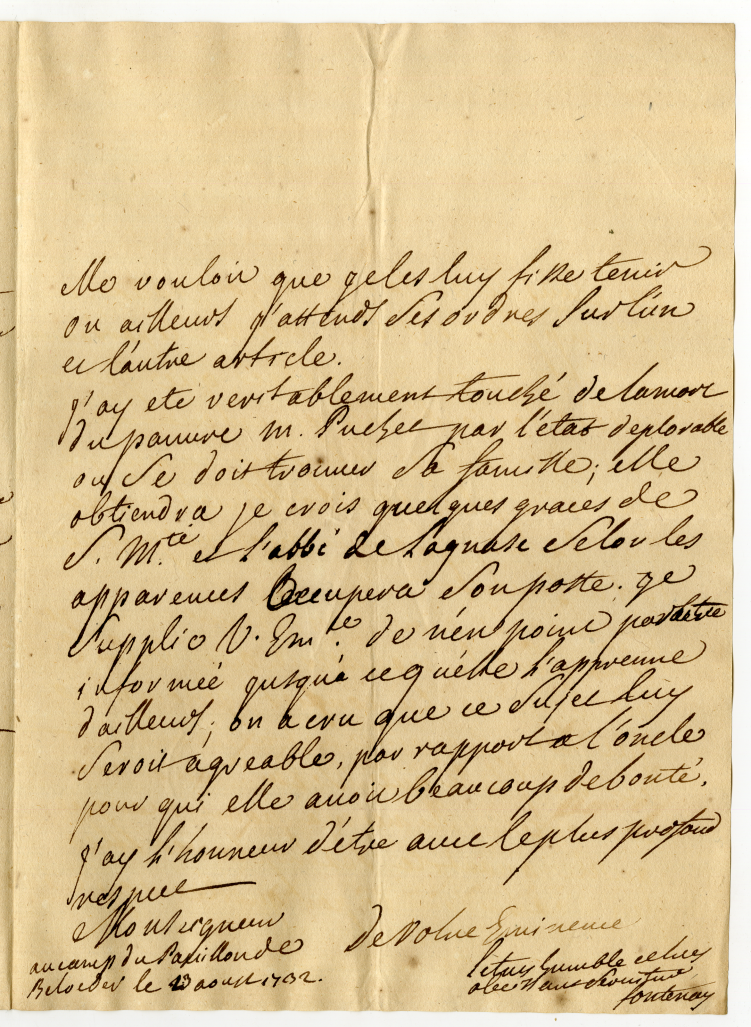 Elle vouloir que je les luy fisse tenir
ou ailleurs j'attends Ses ordres Sur l'un
et l'autre article.
J'ay eté veritablement touché de la mort
du pauvre m. Puchet par l'état deplorable
ou Se doit trouver Sa famille; elle
obtiendra je crois quelques graces de
S. M.té et l'abbé de Selon les
apparences occupera Son poste. je
Supplie V. Em.e de n'en point paroitre
informeé jusqu'à ce qu'elle l'apprenne
d'ailleurs; on a cru que ce Sujet luy
Seroit agreable, par rapport a l'oncle
pour qui elle avoit beaucoup de bonté.
J'ay l'honneur d'être avec le plus profond
respect
Monseigneur
De Votre Eminence
au camp du Papillon de
Beloeder le 23 aoust 1732.
le tres humble et tres
obeissant Serviteur
fontenay